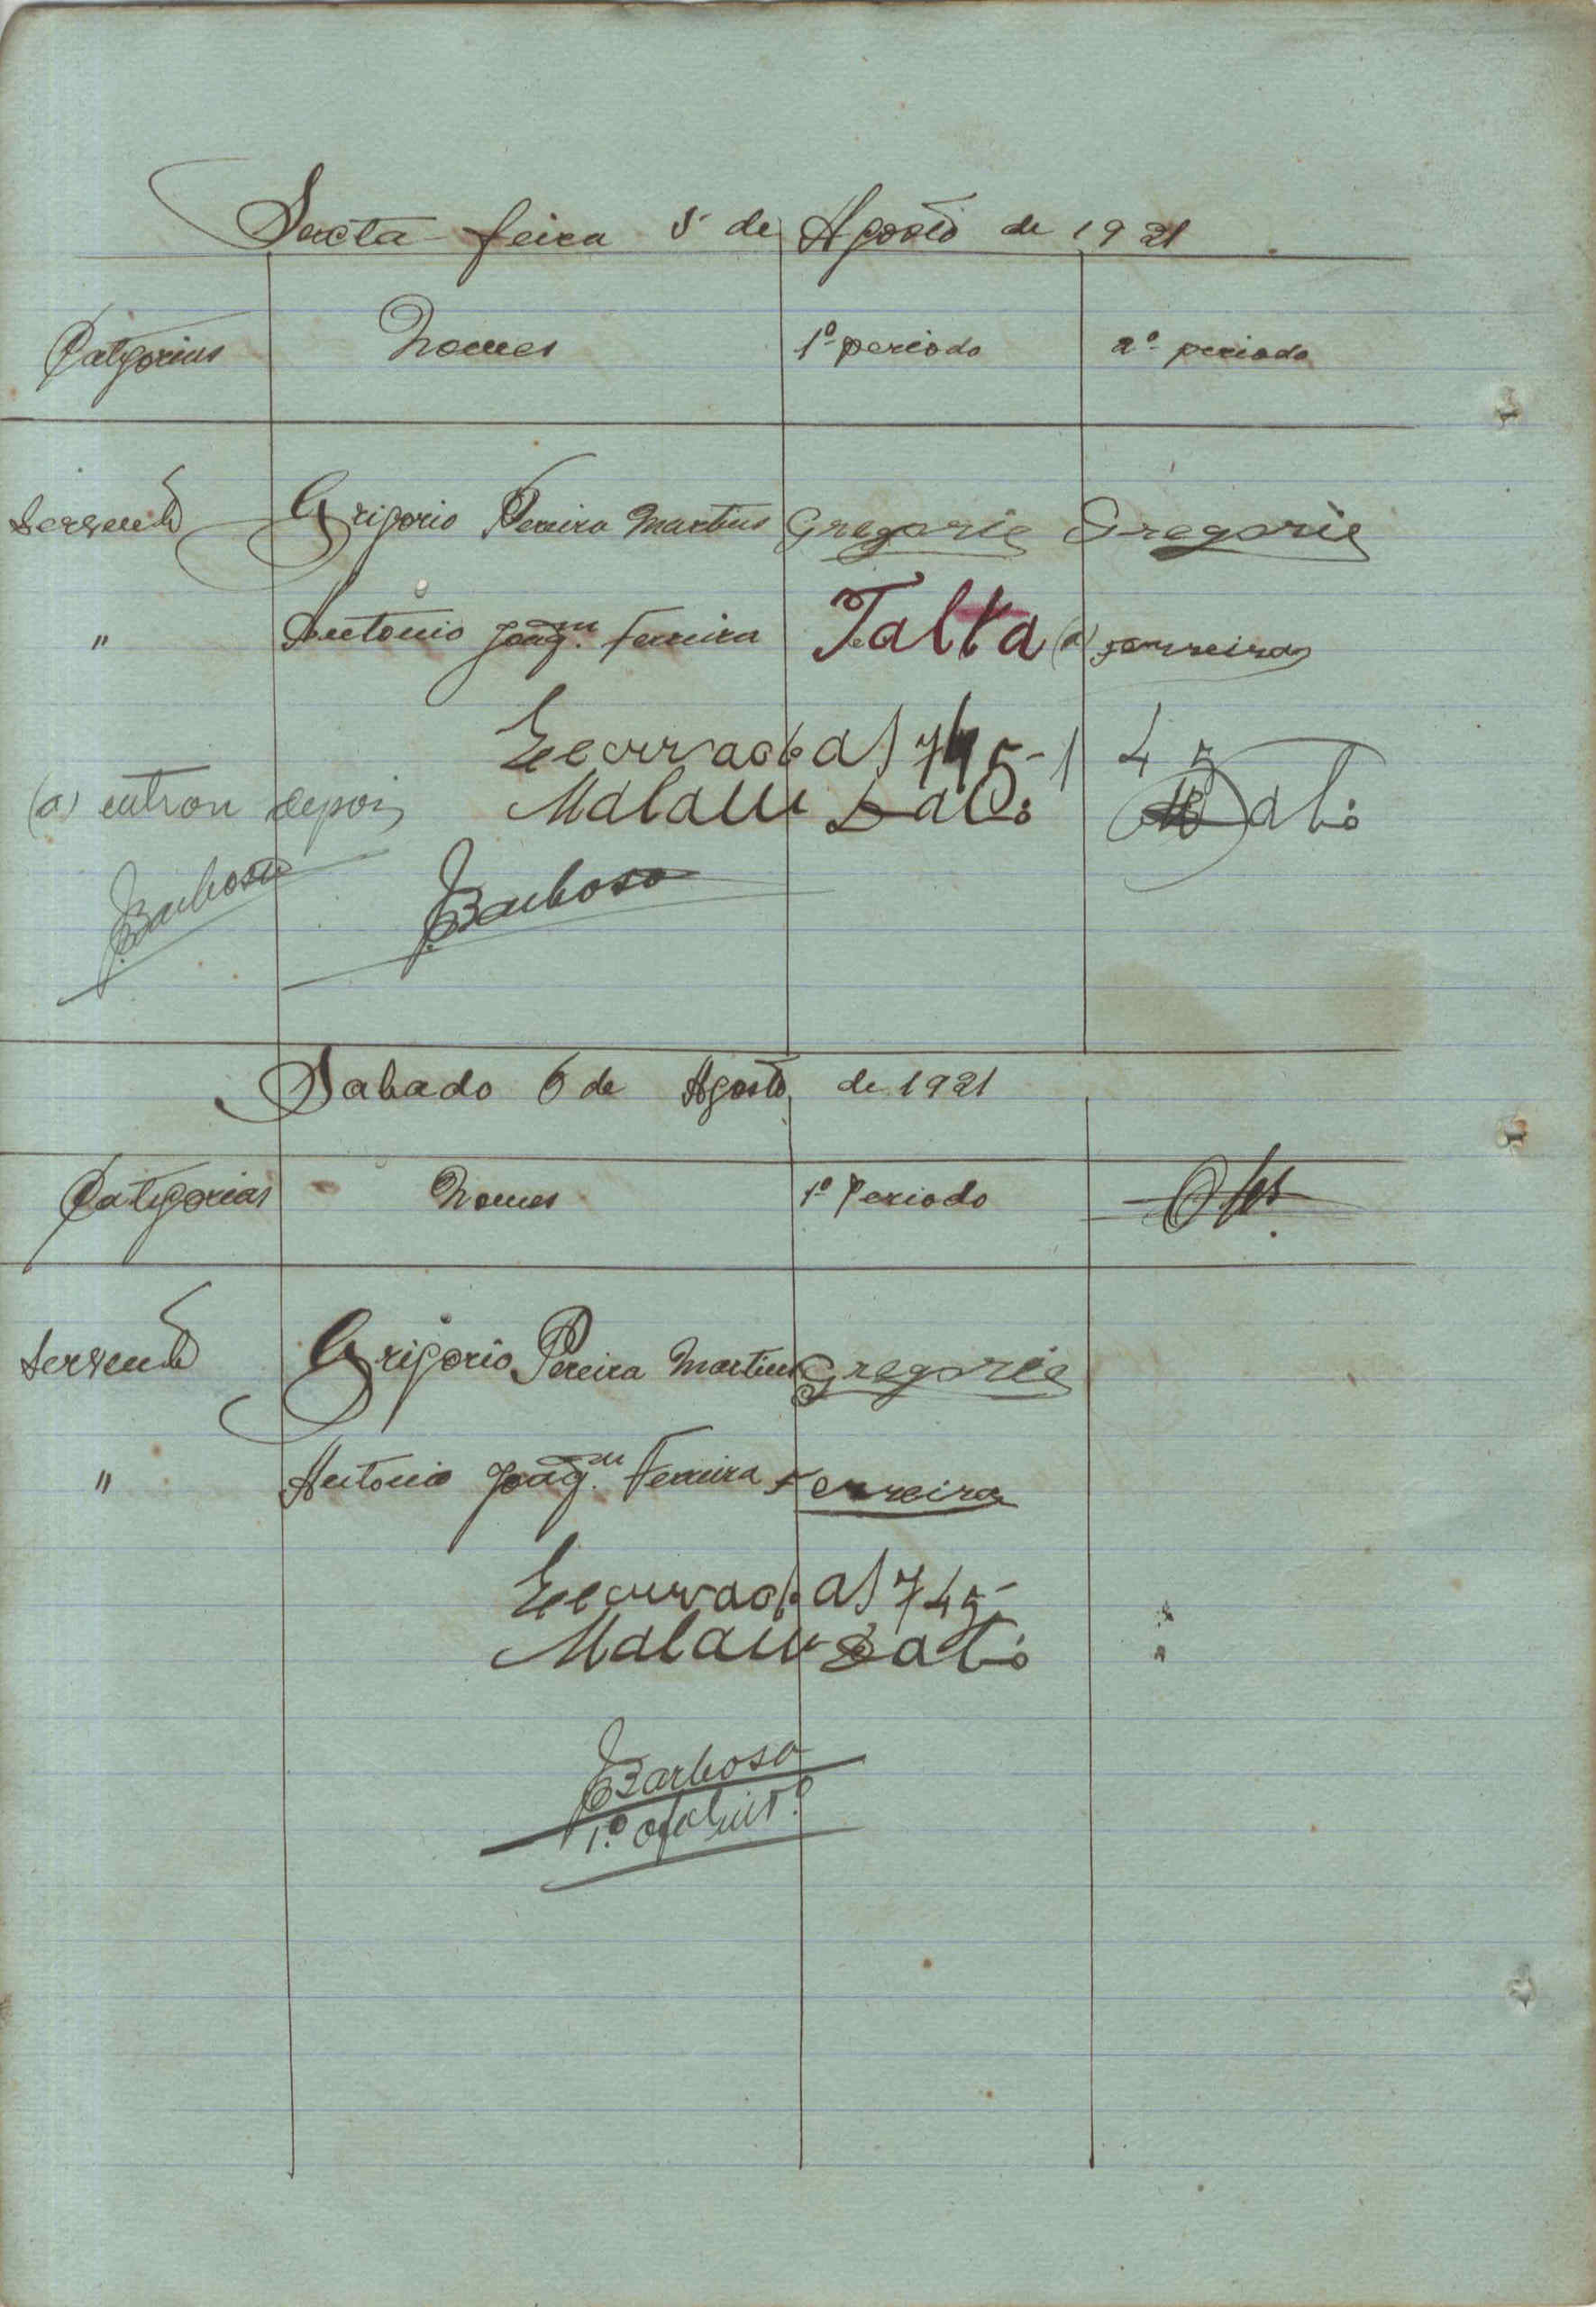 Sexta-feira 5 de Agosto de 1921
Categorias Nomes 1º periodo 2º periodo
Servente Grigorio Pereira Martins Gregorie Gregorie
" Antonio Joaqm. Ferreira Falta (a) Ferreira
as 745- 1 45
(a) entrou depois Malam
Barbosa Barbosa
Sabado 6 de Agosto de 1921
Categorias Nomes 1º Periodo Obs.
Servente Grigorio Pereira Martins Gregorie
" Antonio Joaqm. Ferreira Ferreira
as 745-
Malam
Barbosa
1º